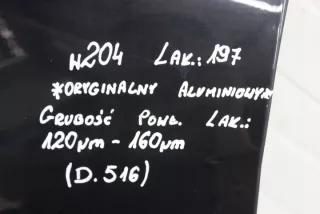 W204 LAK.: 197
*ORYGINALNY ALUMINIOWY
GRUBOŚĆ POWŁ. LAK.:
120µm - 160µm
(D. 516)